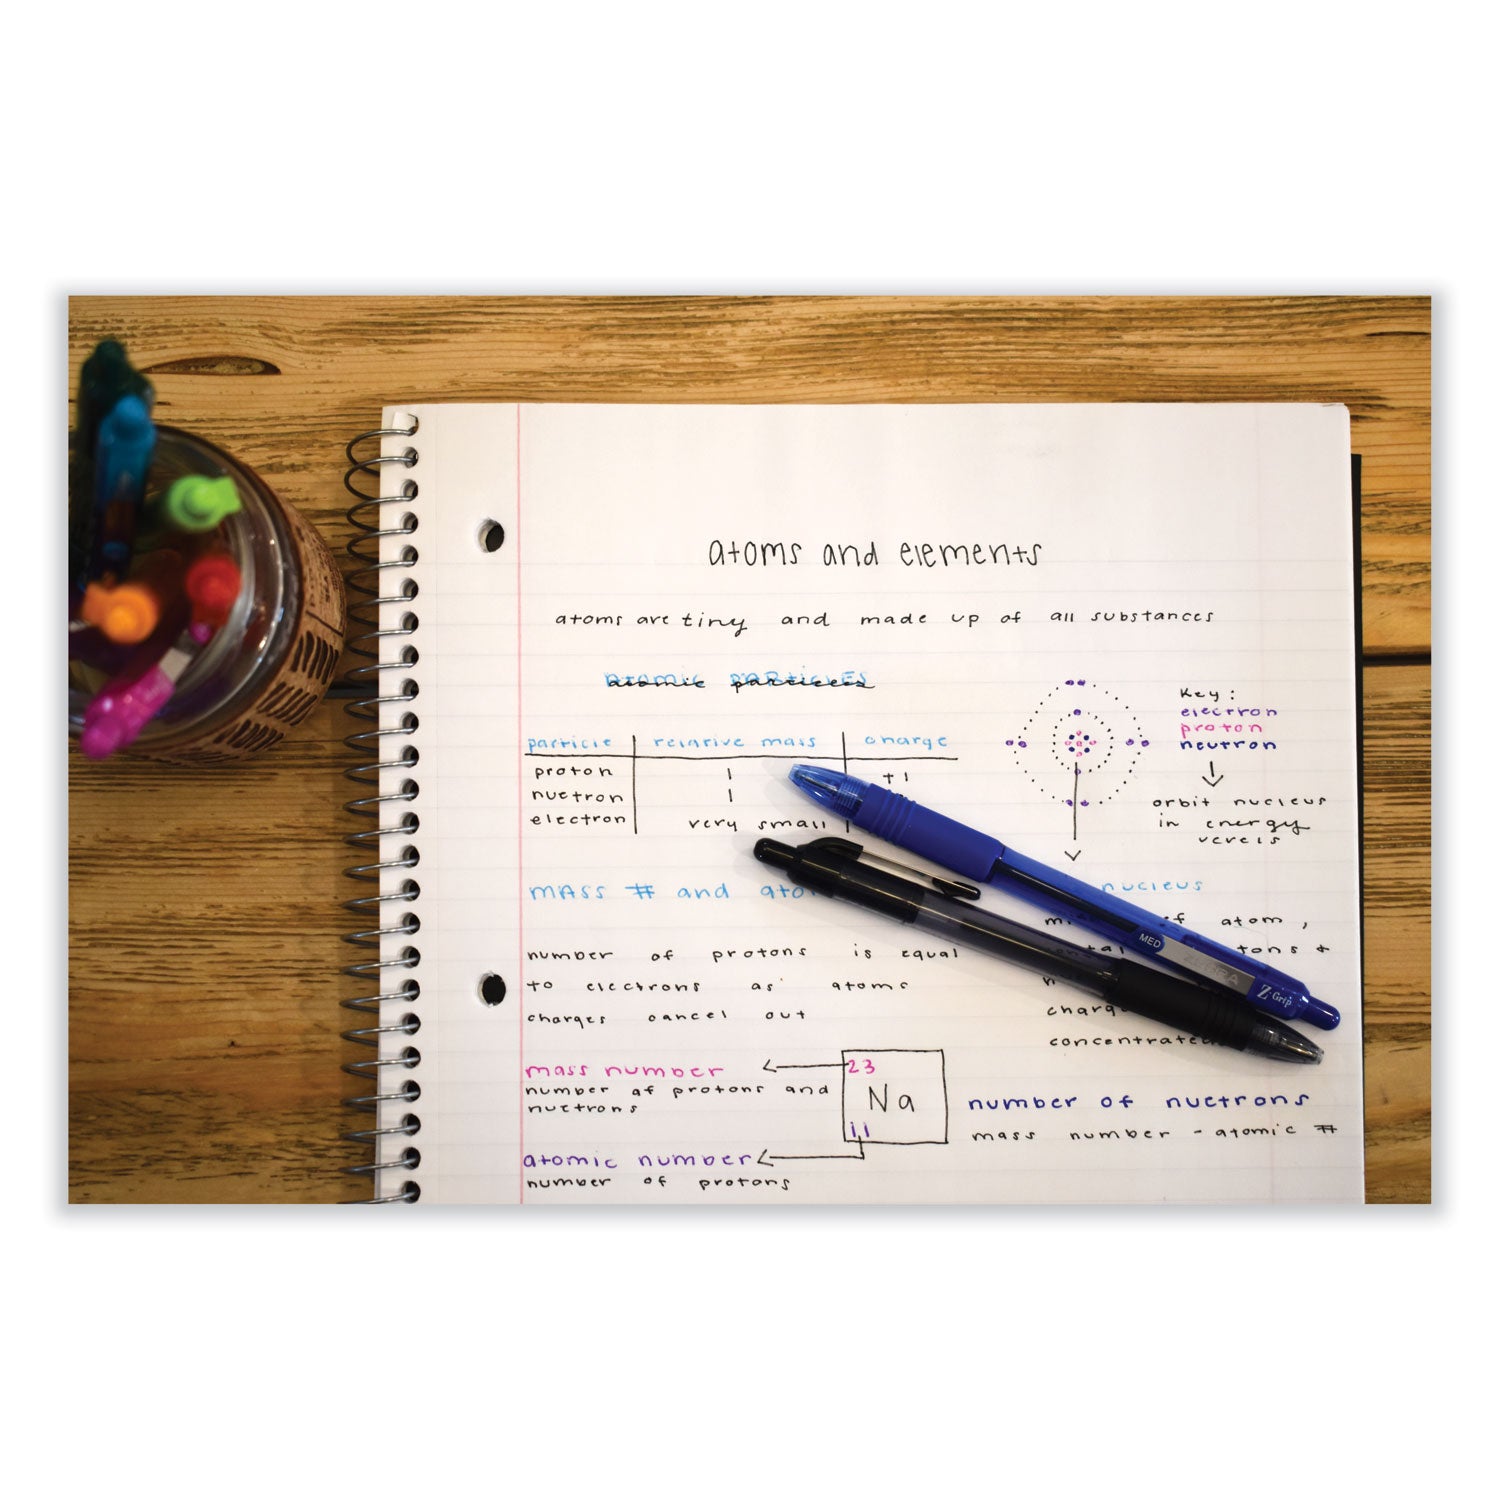 atoms and elements
atoms are tiny and made up of all substances
atomic particles
particle relative mass charge
proton 1 +1
nuetron 1
electron very small
Key:
electron
proton
neutron
orbit nucleus
in energy
MASS # and
nucleus
of atom,
number of protons is equal
to electrons as atoms
charges cancel out
MED ZEBRA Z-Grip
mass number 23
number of protons and
nuetrons
Na
11
atomic number
number of protons
number of nuetrons
mass number - atomic #